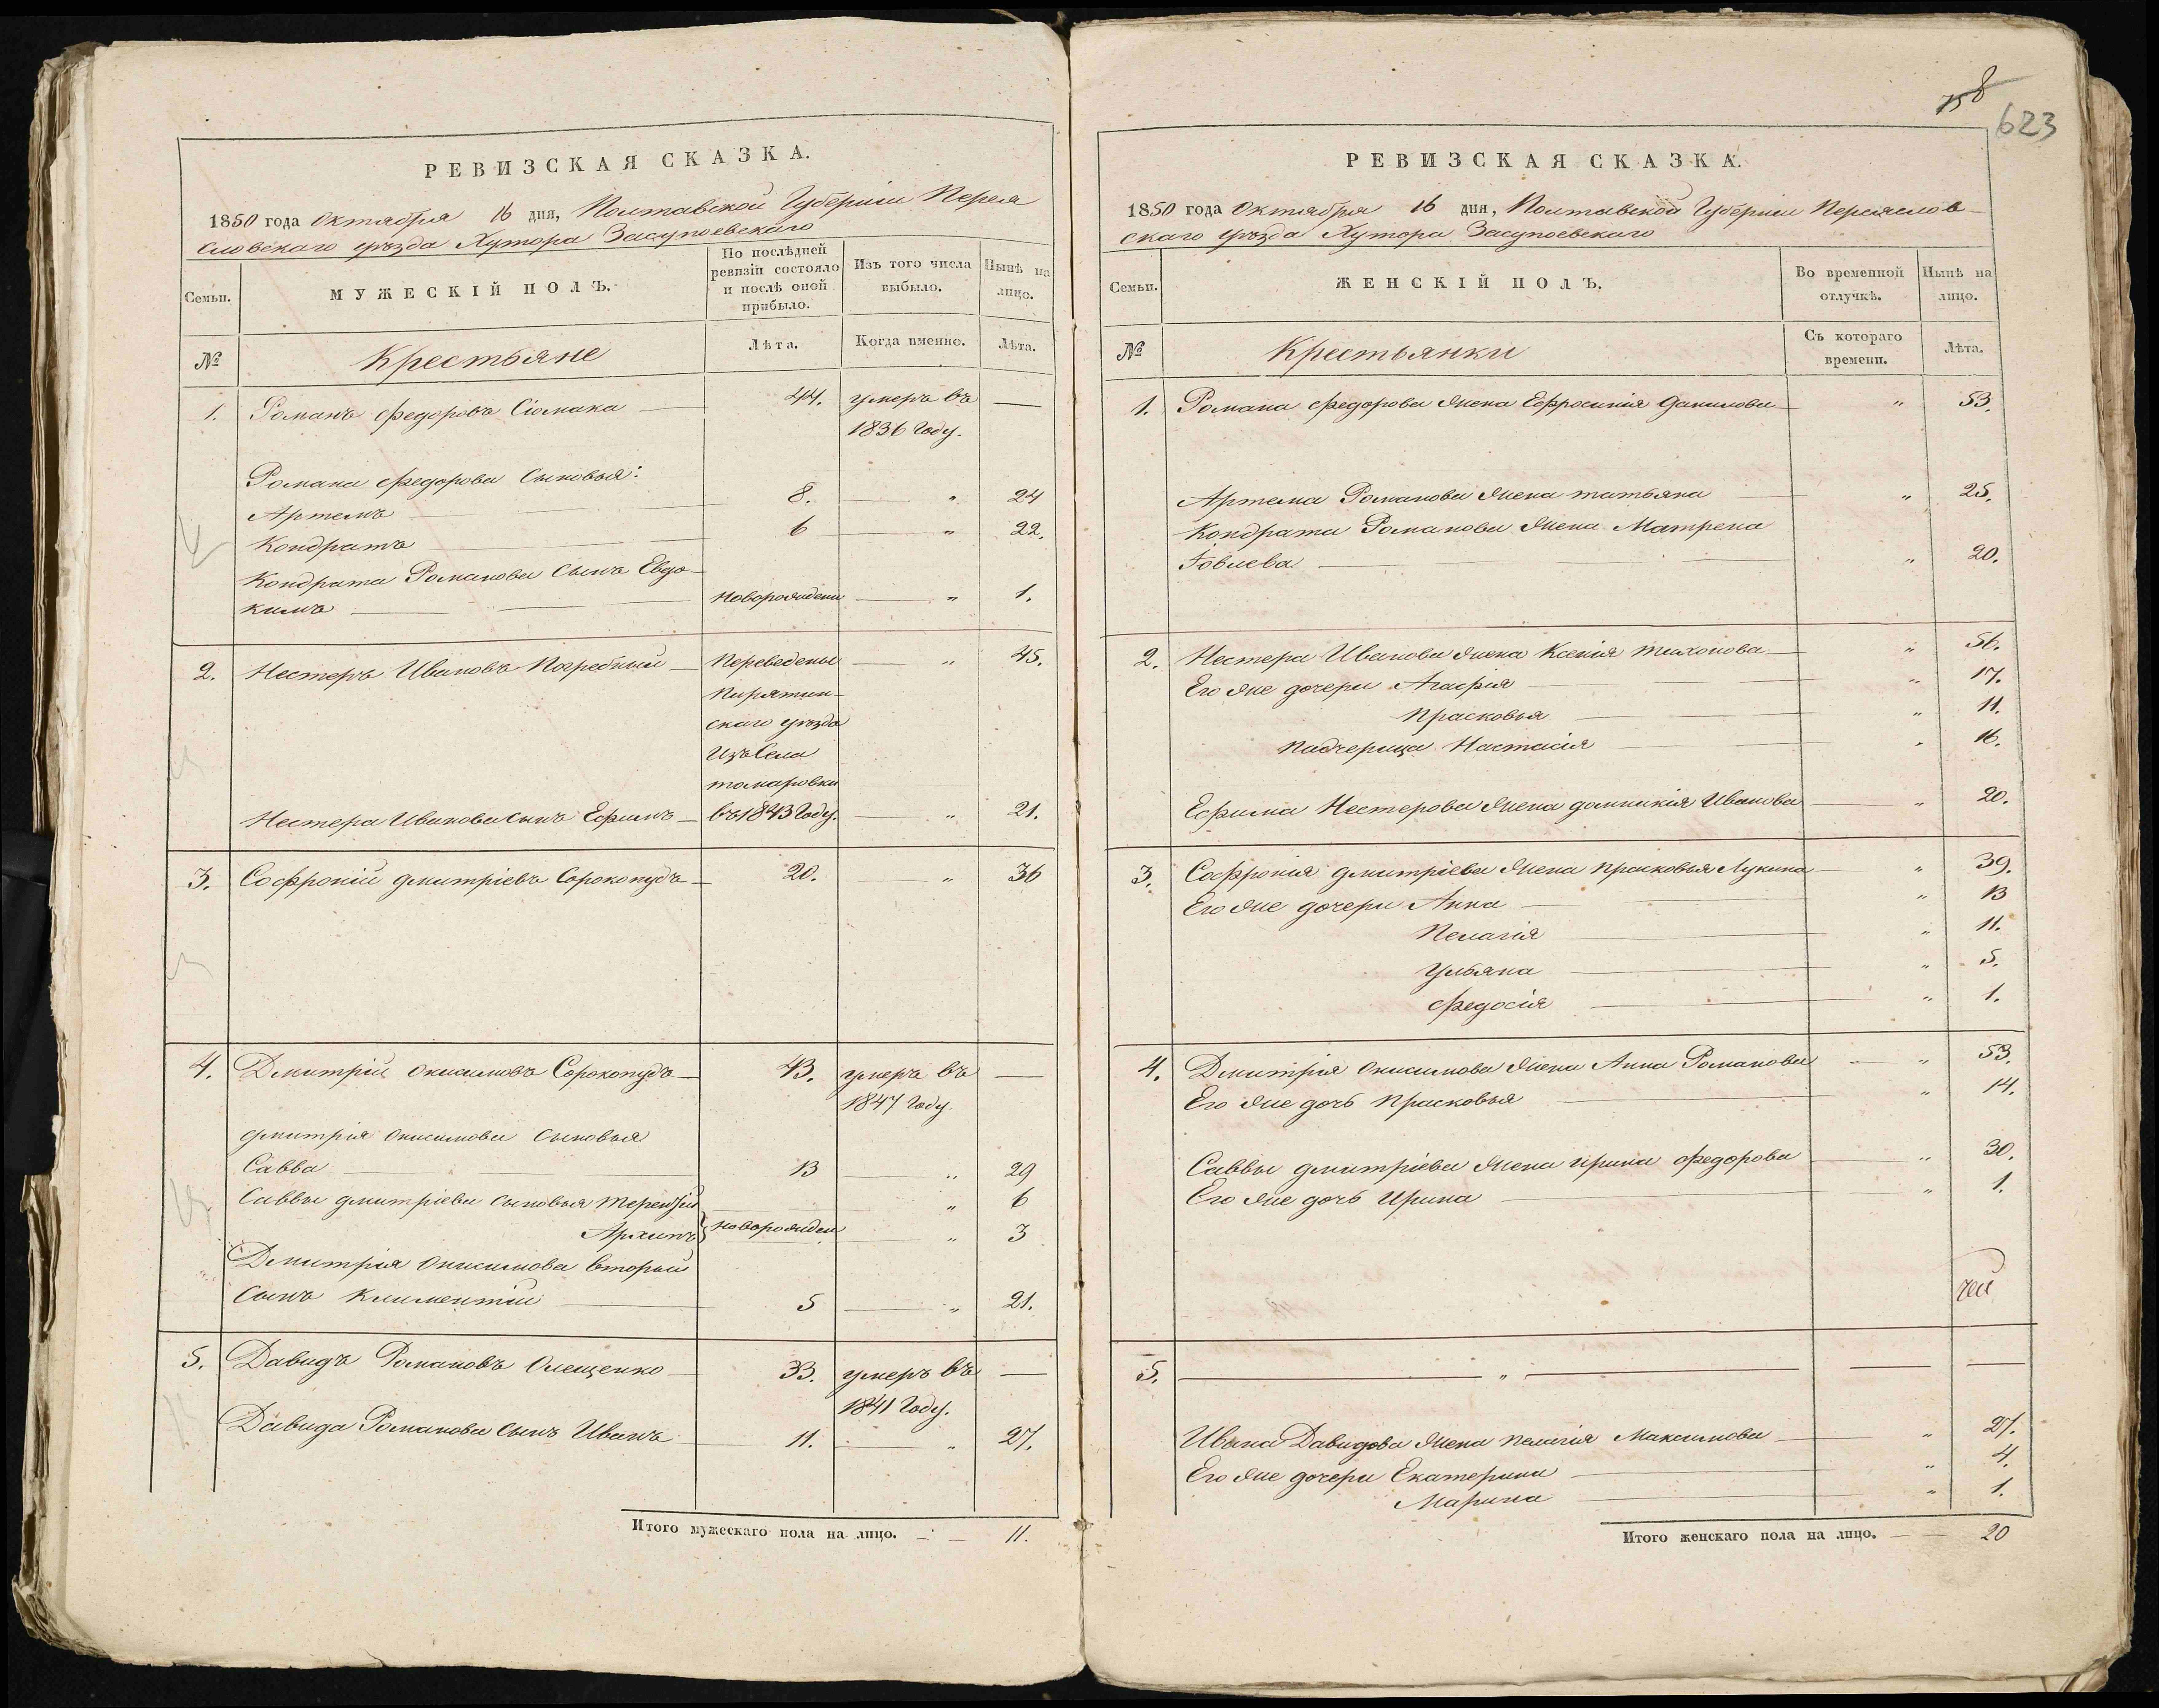 РЕВИЗСКАЯ СКАЗКА.
1850 года Октября 16 дня, Полтавской Губерніи Перея
словскаго уѣзда Хутора Засупоевскаго
Семьи.
МУЖЕСКІЙ ПОЛЪ.
По послѣдней
ревизіи состояло
и послѣ оной
прибыло.
Изъ того числа
выбыло.
Нынѣ на
лицо.
№
Крестьяне
Лѣта.
Когда именно.
Лѣта.
1. Романъ Федоровъ Сіомака — 44. умеръ въ —
1836 Году.
Романа Федорова Сыновья:
Артемъ — 8. — " 24
Кондратъ — 6 — " 22.
Кондрата Романова Сынъ Евдо-
кимъ — новорожден — " 1.
2. Нестеръ Ивановъ Погребный — Переведены — " 45.
Пирятин-
скаго уѣзда
Изъ Села
томаровки
Нестера Иванова Сынъ Ефимъ — въ 1843 Году. — " 21.
3. Софроній Дмитріевъ Сорокопудъ — 20. — " 36
4. Дмитрій Онисимовъ Сорокопудъ — 43. умеръ въ —
1847 Году.
Дмитрія Онисимова Сыновья
Савва — 13 — " 29
Саввы Дмитріева Сыновья Терентій — " 6
Архипъ } новорожден — " 3
Дмитрія Онисимова вторый
Сынъ Климентій — 5 — " 21.
5. Давидъ Романовъ Олещенко — 33. умеръ въ —
1841 Году.
Давида Романова Сынъ Иванъ — 11. — " 27.
Итого мужескаго пола на лицо. — — 11.
8
623
РЕВИЗСКАЯ СКАЗКА.
1850 года Октября 16 дня, Полтавской Губерніи Переяслов-
скаго уѣзда Хутора Засупоевскаго
Семьи.
ЖЕНСКІЙ ПОЛЪ.
Во временной
отлучкѣ.
Нынѣ на
лицо.
№
Крестьянки
Съ котораго
времени.
Лѣта.
1. Романа Федорова жена Ефросинія Данилова — " 53.
Артема Романова жена татьяна — " 25.
Кондрата Романова жена Матрена
Іовлева — " 20.
2. Нестера Иванова жена Ксенія тихонова — " 56.
Его же дочери Агафія — " 17.
Прасковья — " 11.
Падчерица Настасія — " 16.
Ефима Нестерова жена домникія Иванова — " 20.
3. Софронія Дмитріева жена Прасковья Лукина — " 39.
Его же дочери Анна — " 13
Пелагія — " 11.
Ульяна — " 5.
Федосія — " 1.
4. Дмитрія Онисимова жена Анна Романова — " 53.
Его же дочь Прасковья — " 14.
Саввы Дмитріева жена Ирина Федорова — " 30.
Его же дочь Ирина — " 1.
5. — " — — —
Ивана Давидова жена Пелагія Максимова — " 27.
Его же дочери Екатерина — " 4.
Марина — " 1.
Итого женскаго пола на лицо. — — 20